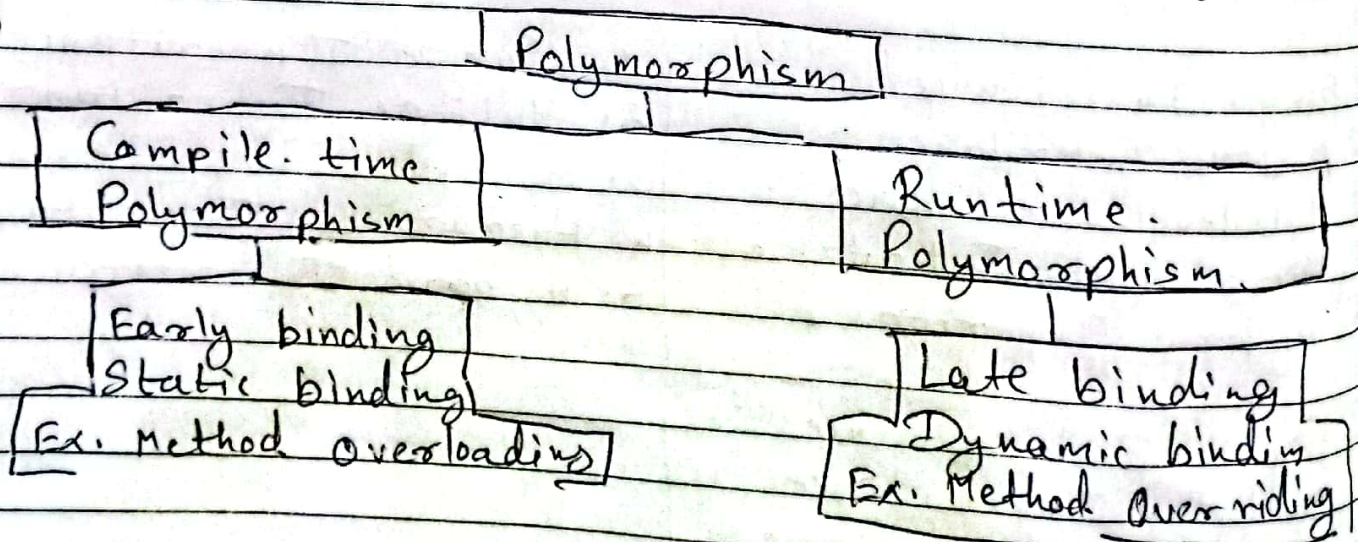 Polymorphism
Compile. time
Polymorphism
Early binding
Static binding
Ex. Method overloading
Runtime.
Polymorphism.
Late binding
Dynamic bindin
Ex. Method Overriding